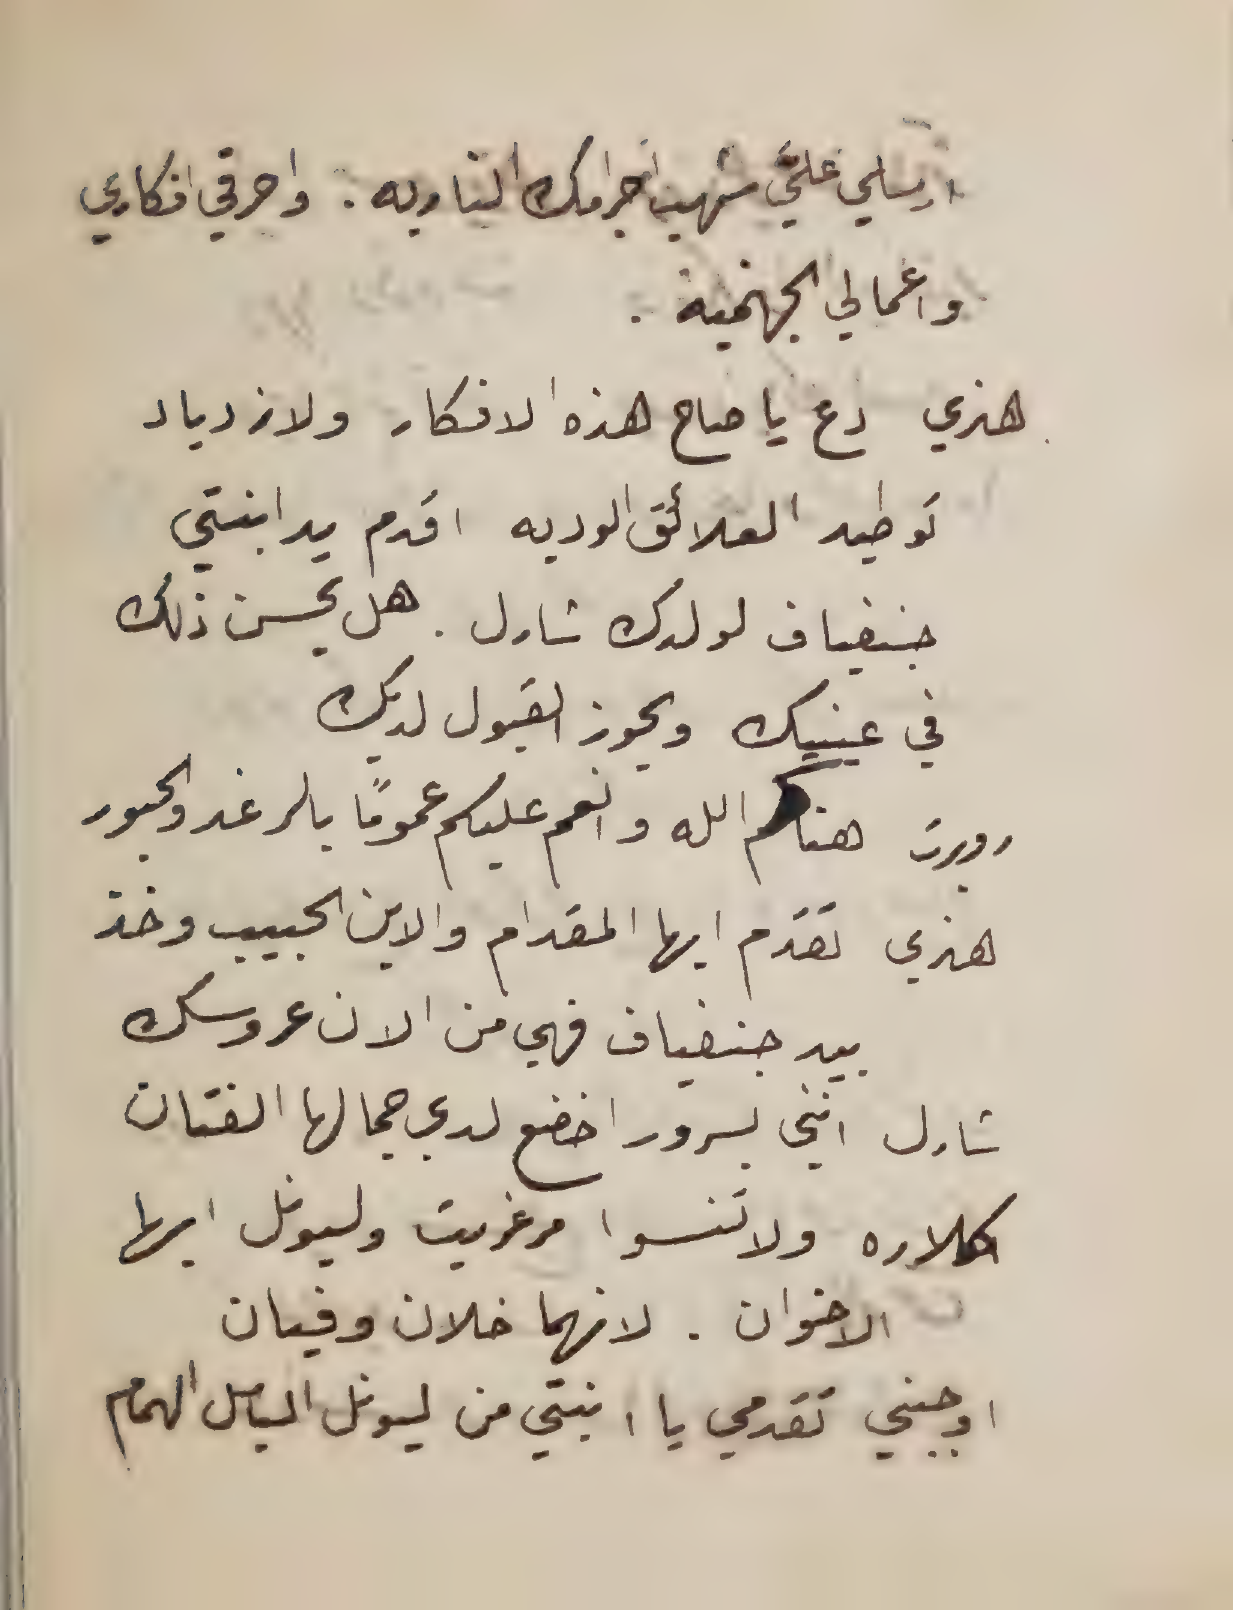 ارسلي عليَّ شهب اجرامك الناريه . واحرقي افكاري
واعمالي الجهنمية .
هنري دع يا صاح هذه الافكار ولازدياد
توطيد العلائق الوديه اقدم يد ابنتي
جنفياف لولدك شارل . هل يحسن ذلك
في عينيك ويحوز القبول لديك
روبرت هناكم الله وانعم عليكم عمومًا بالرغد والحبور
هنري تقدم ايها المقدام والابن الحبيب وخذ
بيد جنفياف فهي من الان عروسك
شارل انني بسرور اخضع لدى جمالها الفتان
كلاره ولا تنسوا مرغريت وليونل ايها
الاخوان . لانهما خلان وفيان
اوجيني تقدمي يا ابنتي من ليونل الباسل الهمام